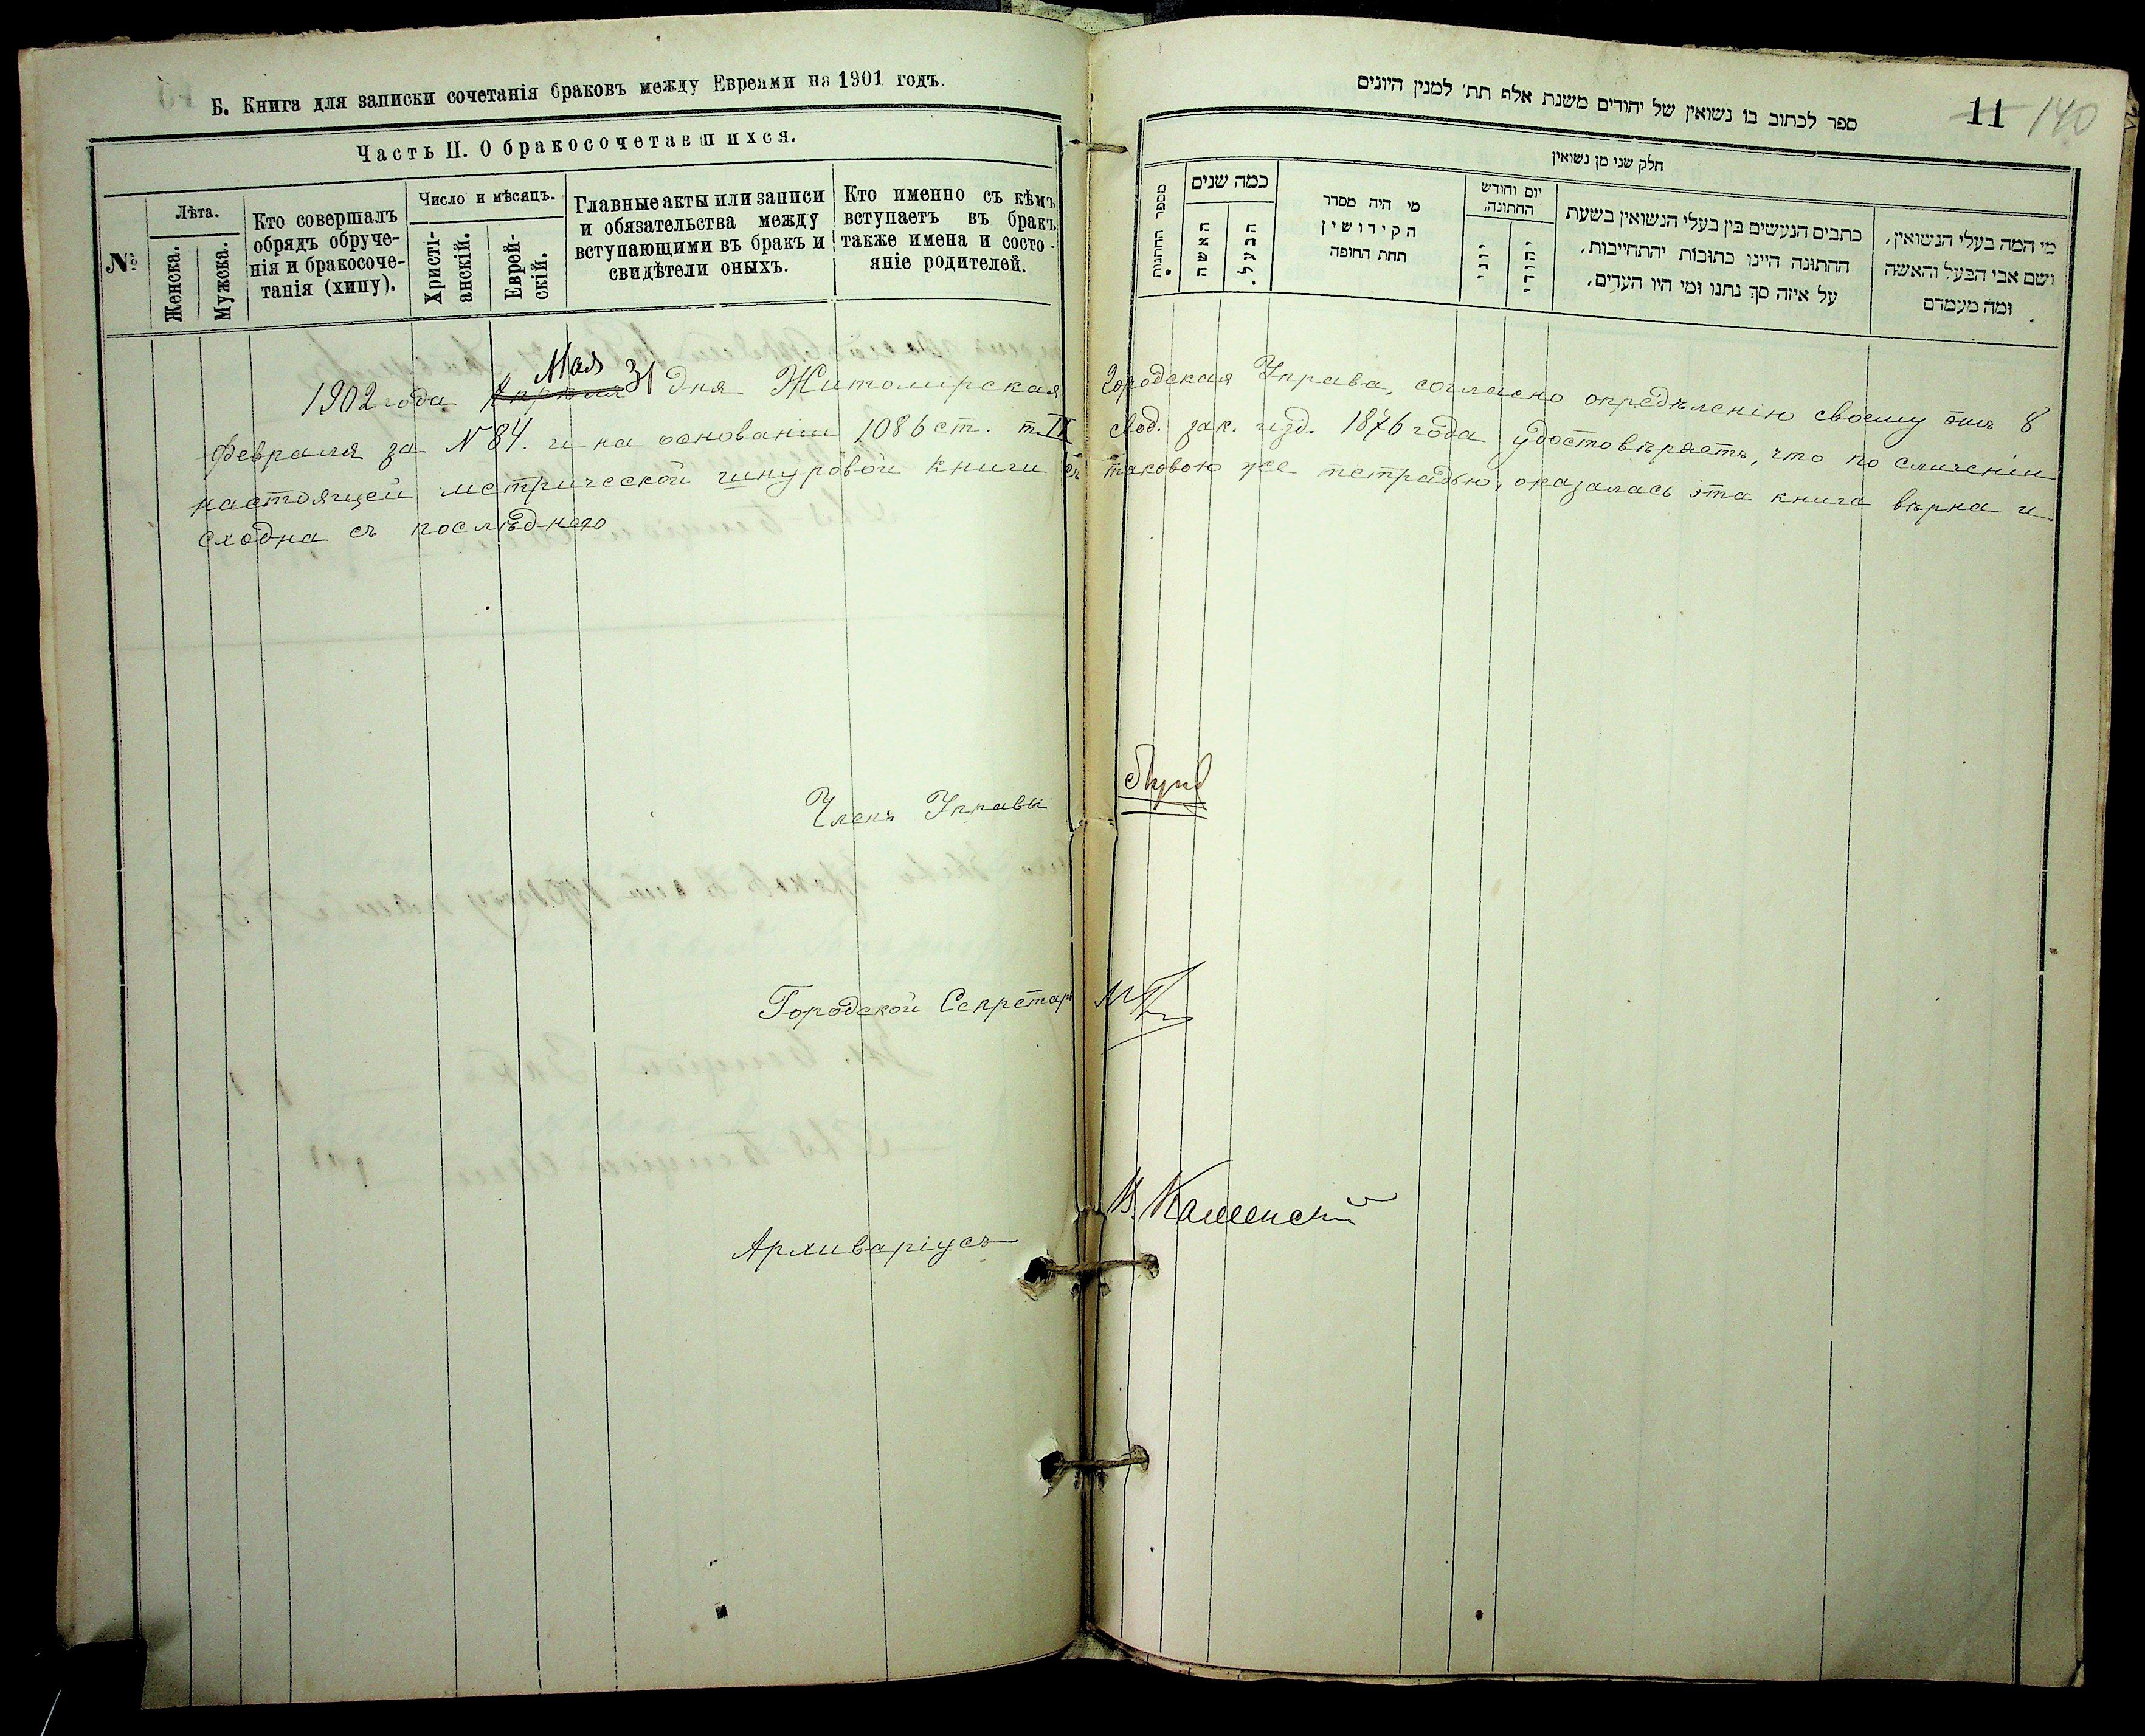 Б. Книга для записки сочетанія браковъ между Евреями на 1901 годъ.
Часть II. О бракосочетавшихся.
№
Лѣта.
Женска.
Мужска.
Кто совершалъ
обрядъ обруче-
нія и бракосоче-
танія (хипу).
Число и мѣсяцъ.
Христі-
анскій.
Еврей-
скій.
Главные акты или записи
и обязательства между
вступающими въ бракъ и
свидѣтели оныхъ.
Кто именно съ кѣмъ
вступаетъ въ бракъ
также имена и состо-
яніе родителей.
ספר לכתוב בו נשואין של יהודים משנת אלף תת׳ למנין היונים
11 140
חלק שני מן נשואין
מספר החתנות
כמה שנים
האשה
הבעל.
מי היה מסדר
הקידושין
תחת החופה
יום וחודש
החתונה.
יוני
יהודי
כתבים הנעשים בין בעלי הנשואין בשעת
החתונה היינו כתובות יהתחייבות,
על איזה סך נתנו ומי היו העדים,
מי המה בעלי הנשואין,
ושם אבי הבעל והאשה
ומה מעמדם
Мая
1902 года Апрѣля 31 дня Житомирская Городская Управа, согласно опредѣленію своему отъ 8
Февраля за N 84. и на основаніи 1086 ст. т. IX свод. зак. изд. 1876 года удостовѣряетъ, что по сличеніи
настоящей метрической шнуровой книги съ таковою же тетрадью, оказалась эта книга вѣрна и
сходна съ послѣднею
Членъ Управы
Городской Секретарь
Архиваріусъ В. Каменскій